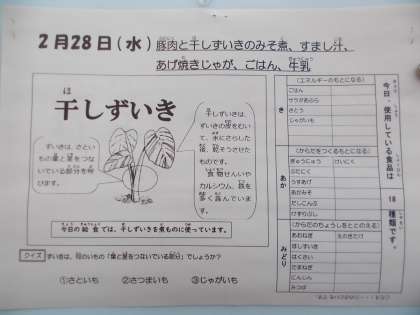 2月28日(水)豚肉と干しずいきのみそ煮、すまし汁、
あげ焼きじゃが、ごはん、牛乳
ほ
干しずいき
ずいきは、さとい
もの葉と茎をつな
いでいる部分を呼
びます。
干しずいきは、
ずいきの皮をむい
て、水にさらした
後、乾そうさせた
ものです。
食物せんいや
カルシウム、鉄を
多く含んでいま
す。
今日の給食では、干しずいきを煮ものに使っています。
クイズ ずいきは、何のいもの「葉と茎をつないでいる部分」でしょうか?
①さといも ②さつまいも ③じゃがいも
今日、使用している食品は 18 種類です。
き
(エネルギーのもとになる)
ごはん
サラダあぶら
さとう
じゃがいも
あか
(からだをつくるもとになる)
ぎゅうにゅう けいにく
ぶたにく
うすあげ
あかみそ
だしこんぶ
けずりぶし
みどり
(からだのちょうしをととのえる)
あおねぎ えのきたけ
ほしずいき
はくさい
たまねぎ
にんじん
みつば